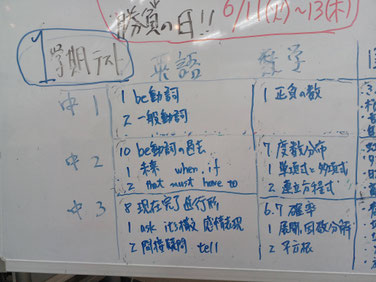 勝負の日!! 6/11(火)~13(木)
1学期テスト
英語 数学
中1
1 be動詞
2 一般動詞
1 正負の数
中2
10 be動詞の過去
1 未来 when if
2 that must have to
7 度数分布
1 単項式と多項式
2 連立方程式
中3
8 現在完了進行形
1 ask its徴 感情表現
2 間接疑問 tell
6.7 確率
1 展開、因数分解
2 平方根